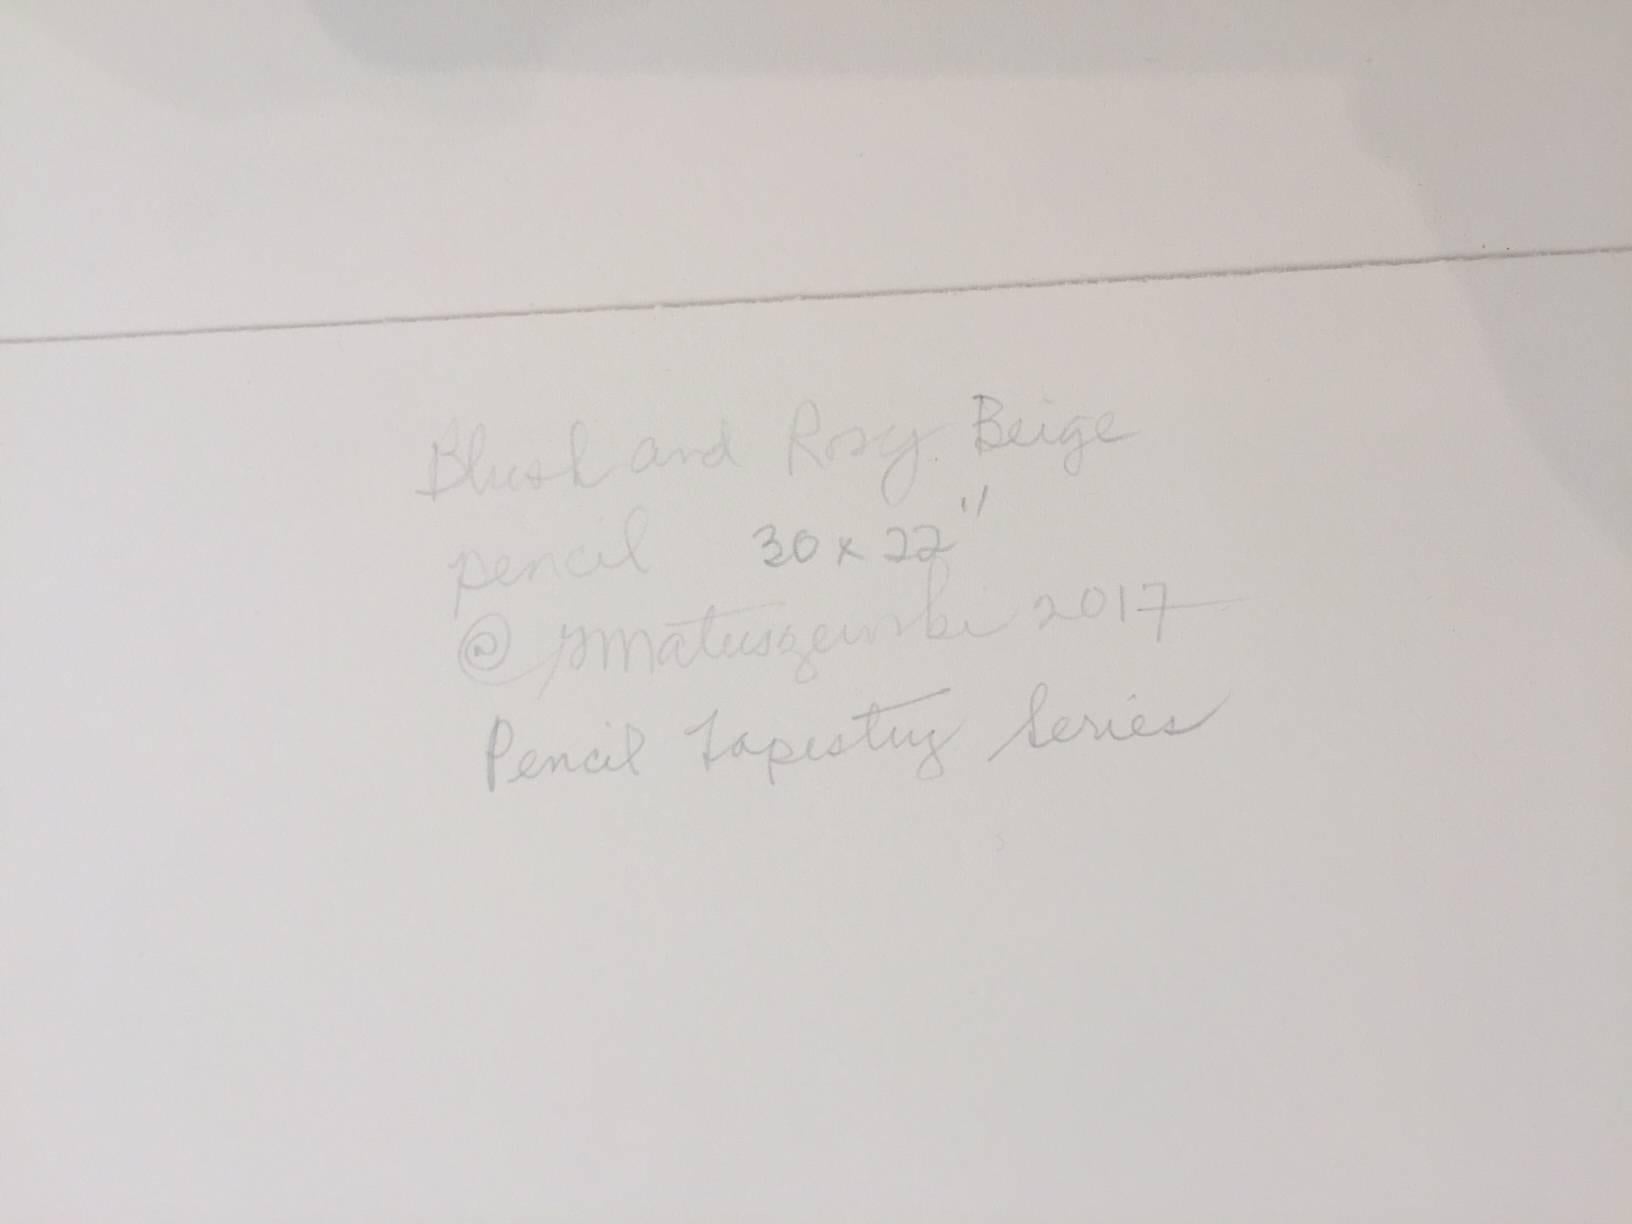 Blush and Rosy Beige
pencil 30 x 22"
@ Matuszewski 2017
Pencil Tapestry Series